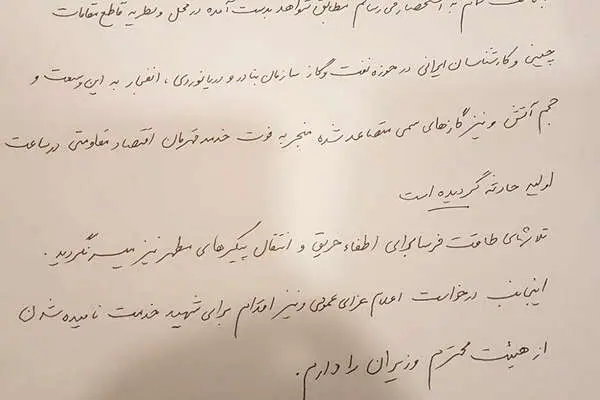 به استحضار می رسانم مطابق شواهد بدست آمده در محل و نظریه قاطع مقامات
چینی و کارشناسان ایرانی در حوزه نفت و گاز سازمان بنادر و دریانوردی ، انفجار به این وسعت و
حجم آتش و نیز گازهای سمی متصاعد شده منجر به فوت خدمه قهرمان اقتصاد مقاومتی در ساعت
اولیه حادثه گردیده است
تلاشهای طاقت فرسا برای اطفاء حریق و انتقال پیکرهای مطهر نیز میسر نگردید .
اینجانب درخواست اعلام عزای عمومی و نیز اقدام برای شهید خدمت نامیده شدن
از هیئت محترم وزیران را دارم .